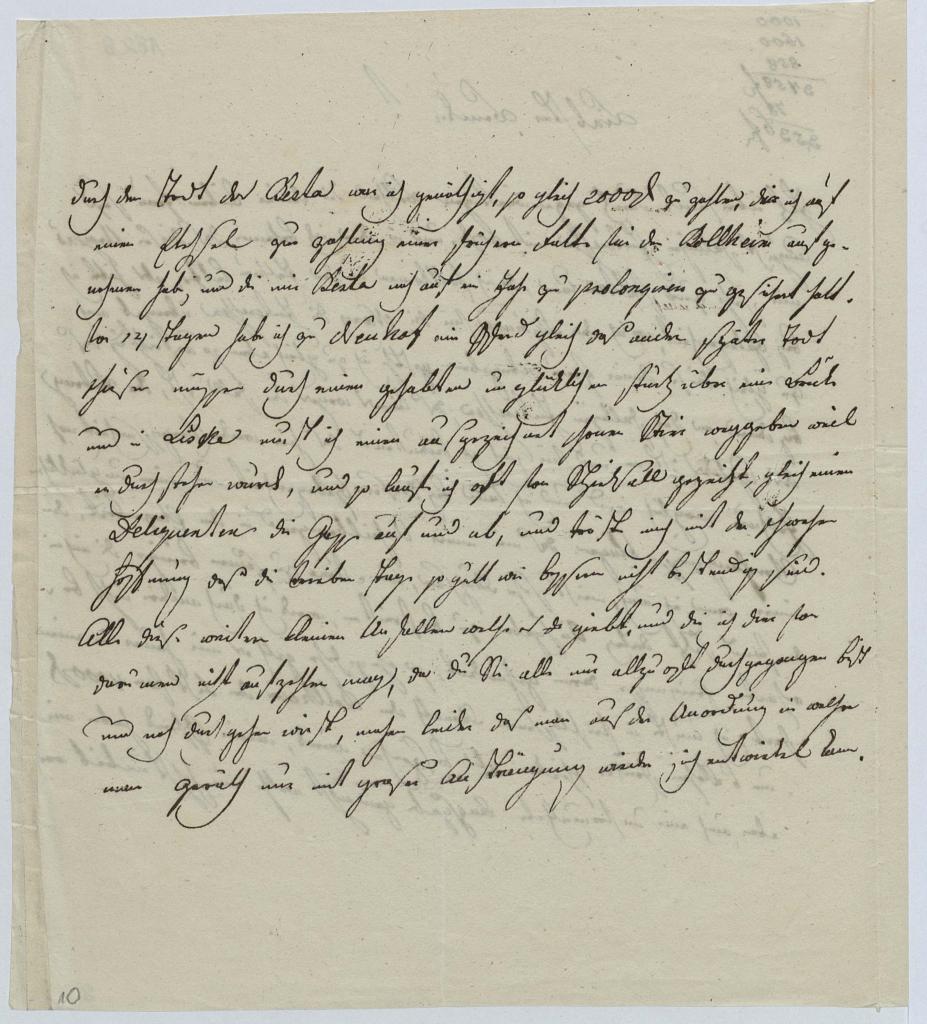 durch den Todt der Berta war ich genöthigt, so gleich 2000 f zu zahlen, die ich auf
einen Wechsel zur zahlung einer frühern Schuld für die Bollheim aufge-
nohmen hab, und die mir Berta noch auf ein Jahr zu prolongiren zu gesichert hatt.
Vor 14 Tagen habe ich zu Neuhof ein Pferd gleich das andere später Todt
schiesen müssen durch einen gehabten unglücklichen sturtz über eine Brücke
und in must ich einen ausgezeichnet schönen Stier weggeben weil
er durch stehen wurde, und so laufe ich oft vom Schicksall gepeitscht, gleich einem
Deliquenten die Gasse auf und ab, und tröste mich mit der schwachen
Hoffnung daß die trüben Tage so gutt wie bessern nicht bestendig sind.
Alle diese weitern kleinen Anfellen welche es da giebt, und die ich dir von
darumen nicht aufzehlen mag, da du Sie alle nur allzuoft durchgegangen bist
und noch durchgehen wirst, machen leider daß man aus der Unordnung in welche
man geräth nur mit groser Anstrengung wieder sich entwickel kann.
10